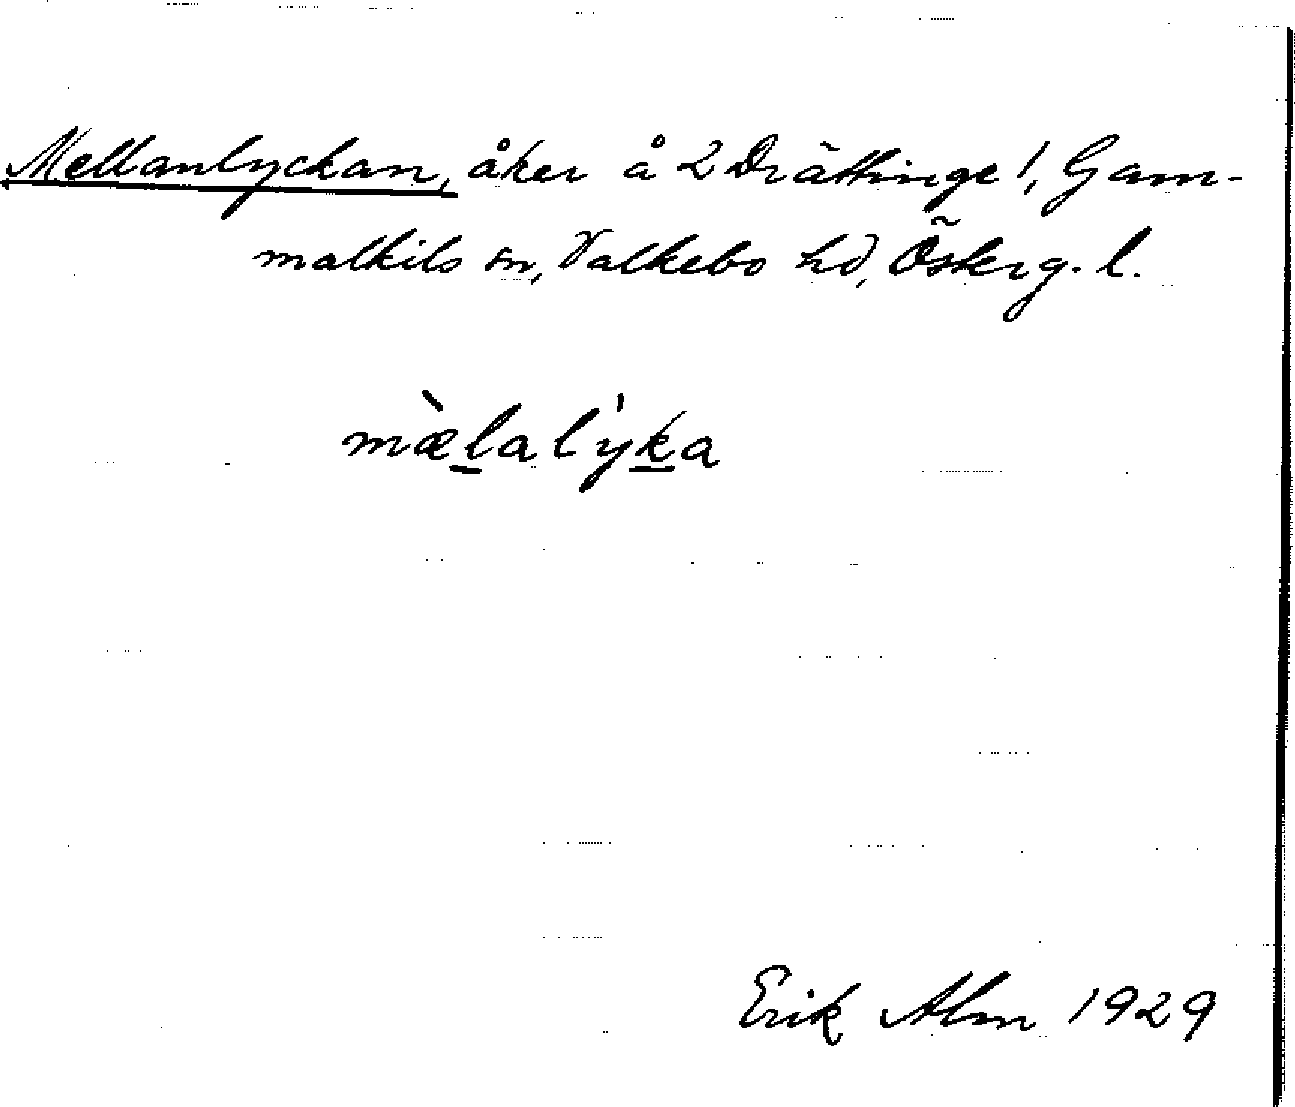 Mellanlyckan, åker å 2 Drättinge !, Gam-
malkils sn, Valkebo hd, Österg. l.
mæ̀l̲aly̍k̲a
Erik Alm 1929